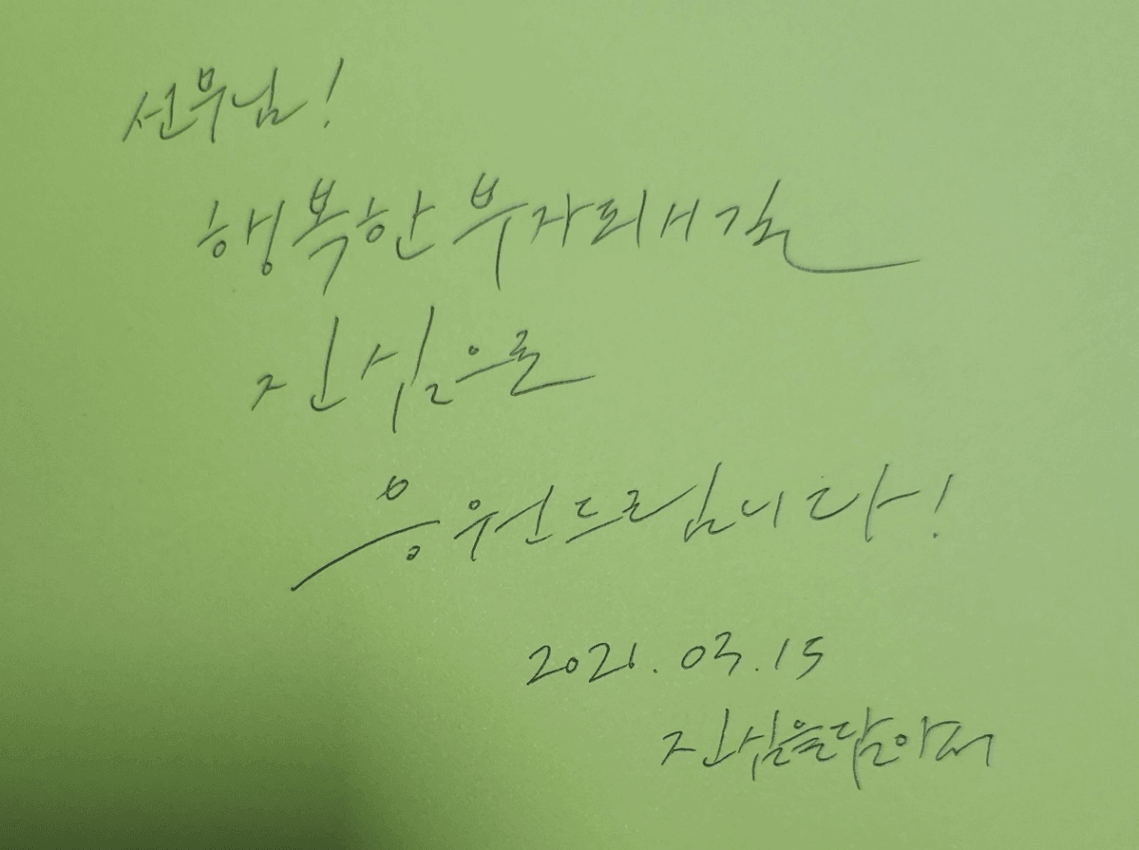 선무님!
행복한 부자되시길
진심으로
응원드립니다!
2021.03.15
진심을담아서